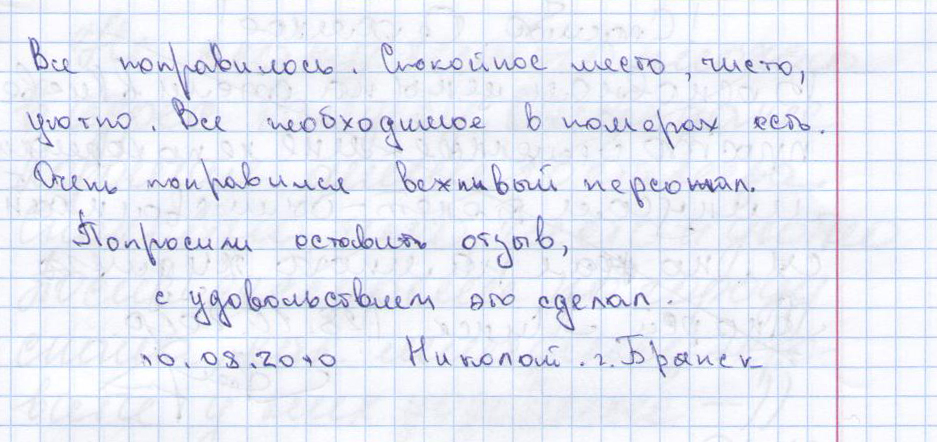 Все понравилось. Спокойное место, чисто,
уютно. Все необходимое в номерах есть.
Очень понравился вежливый персонал.
Попросили оставить отзыв,
с удовольствием это сделал.
10.08.2010 Николай. г. Брянск